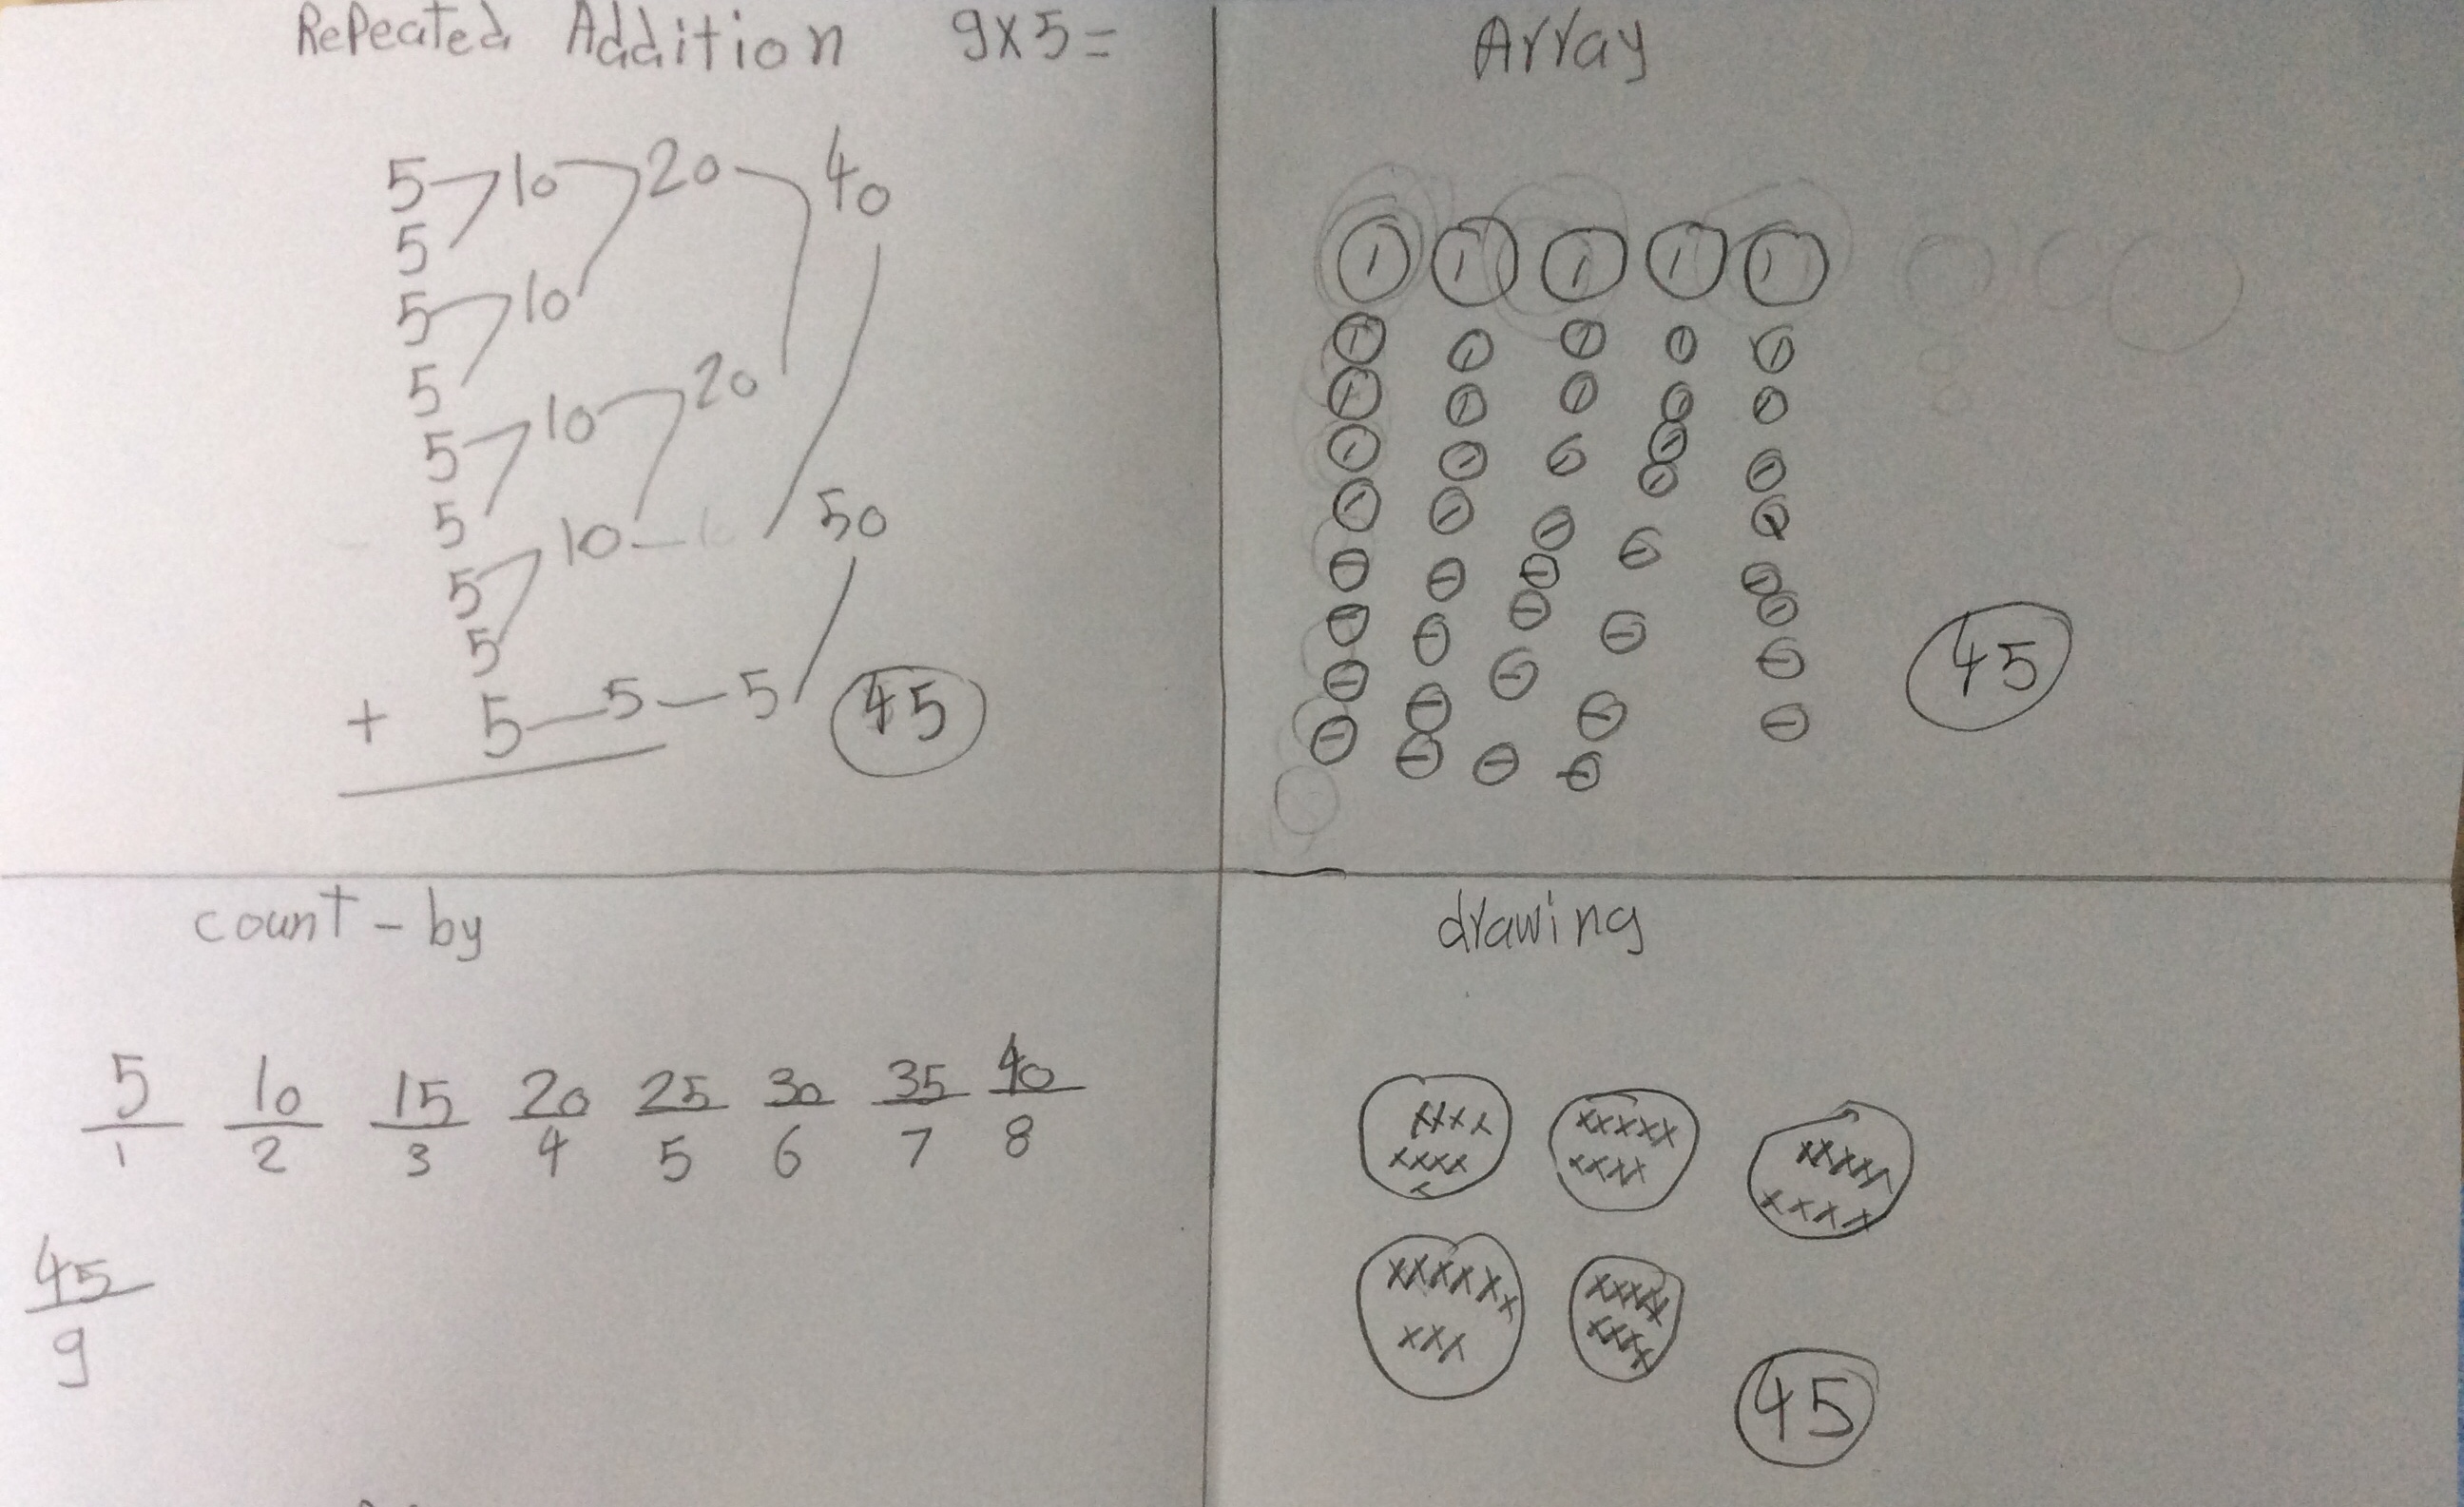 Repeated Addition 9x5=
5 10 20 40
5
5 10
5
5 10 20
5
5 10 50
5
+ 5 5 5 45
Array
45
count-by
5 10 15 20 25 30 35 40
1 2 3 4 5 6 7 8
45
9
drawing
xxxx xxxxx xxxxx
xxxx xxxx xxxx
x
xxxxxx xxxxx
xxx xxxx
45